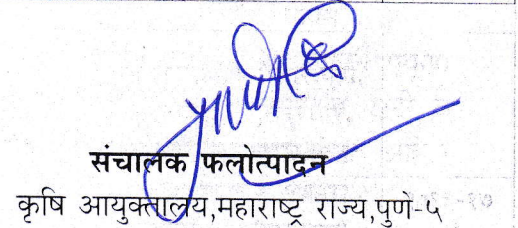 संचालक फलोत्पादन
कृषि आयुक्तालय,महाराष्ट्र राज्य,पुणे-५